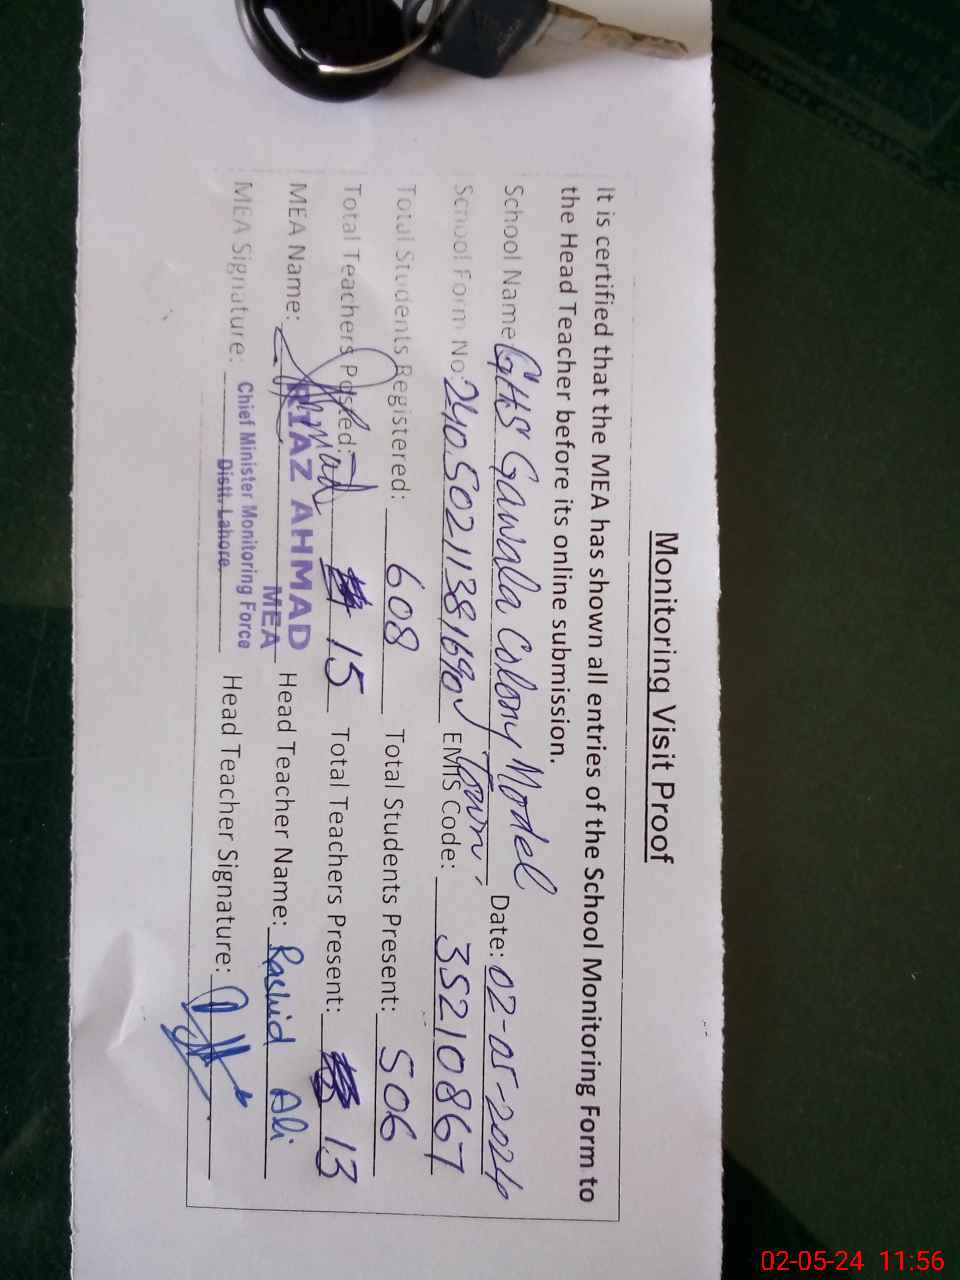 Monitoring Visit Proof
It is certified that the MEA has shown all entries of the School Monitoring Form to
the Head Teacher before its online submission.
School Name: GHS Gawala Colony Model Town, Date: 02-05-2024
School Form No: 24050211381690 EMIS Code: 35210867
Total Students Registered: 608 Total Students Present: 506
Total Teachers Posted: 15 Total Teachers Present: 13
MEA Name: RIAZ AHMAD Head Teacher Name: Rashid Ali
MEA
MEA Signature: Chief Minister Monitoring Force Head Teacher Signature:
Distt. Lahore.
02-05-24 11:56